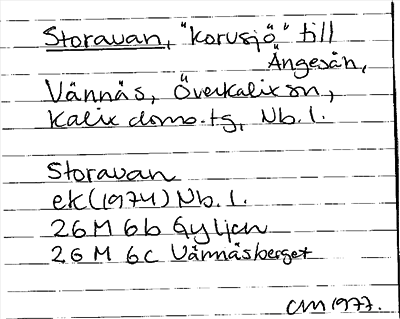 Storavan, "korvsjö" till
Ängesån,
Vännäs, Överkalix sn,
Kalix doms.tg, Nb.l.
Storavan
ek (1974) Nb.l.
26M 6b Gyljen
26M 6c Vännäsberget
CM 1977.